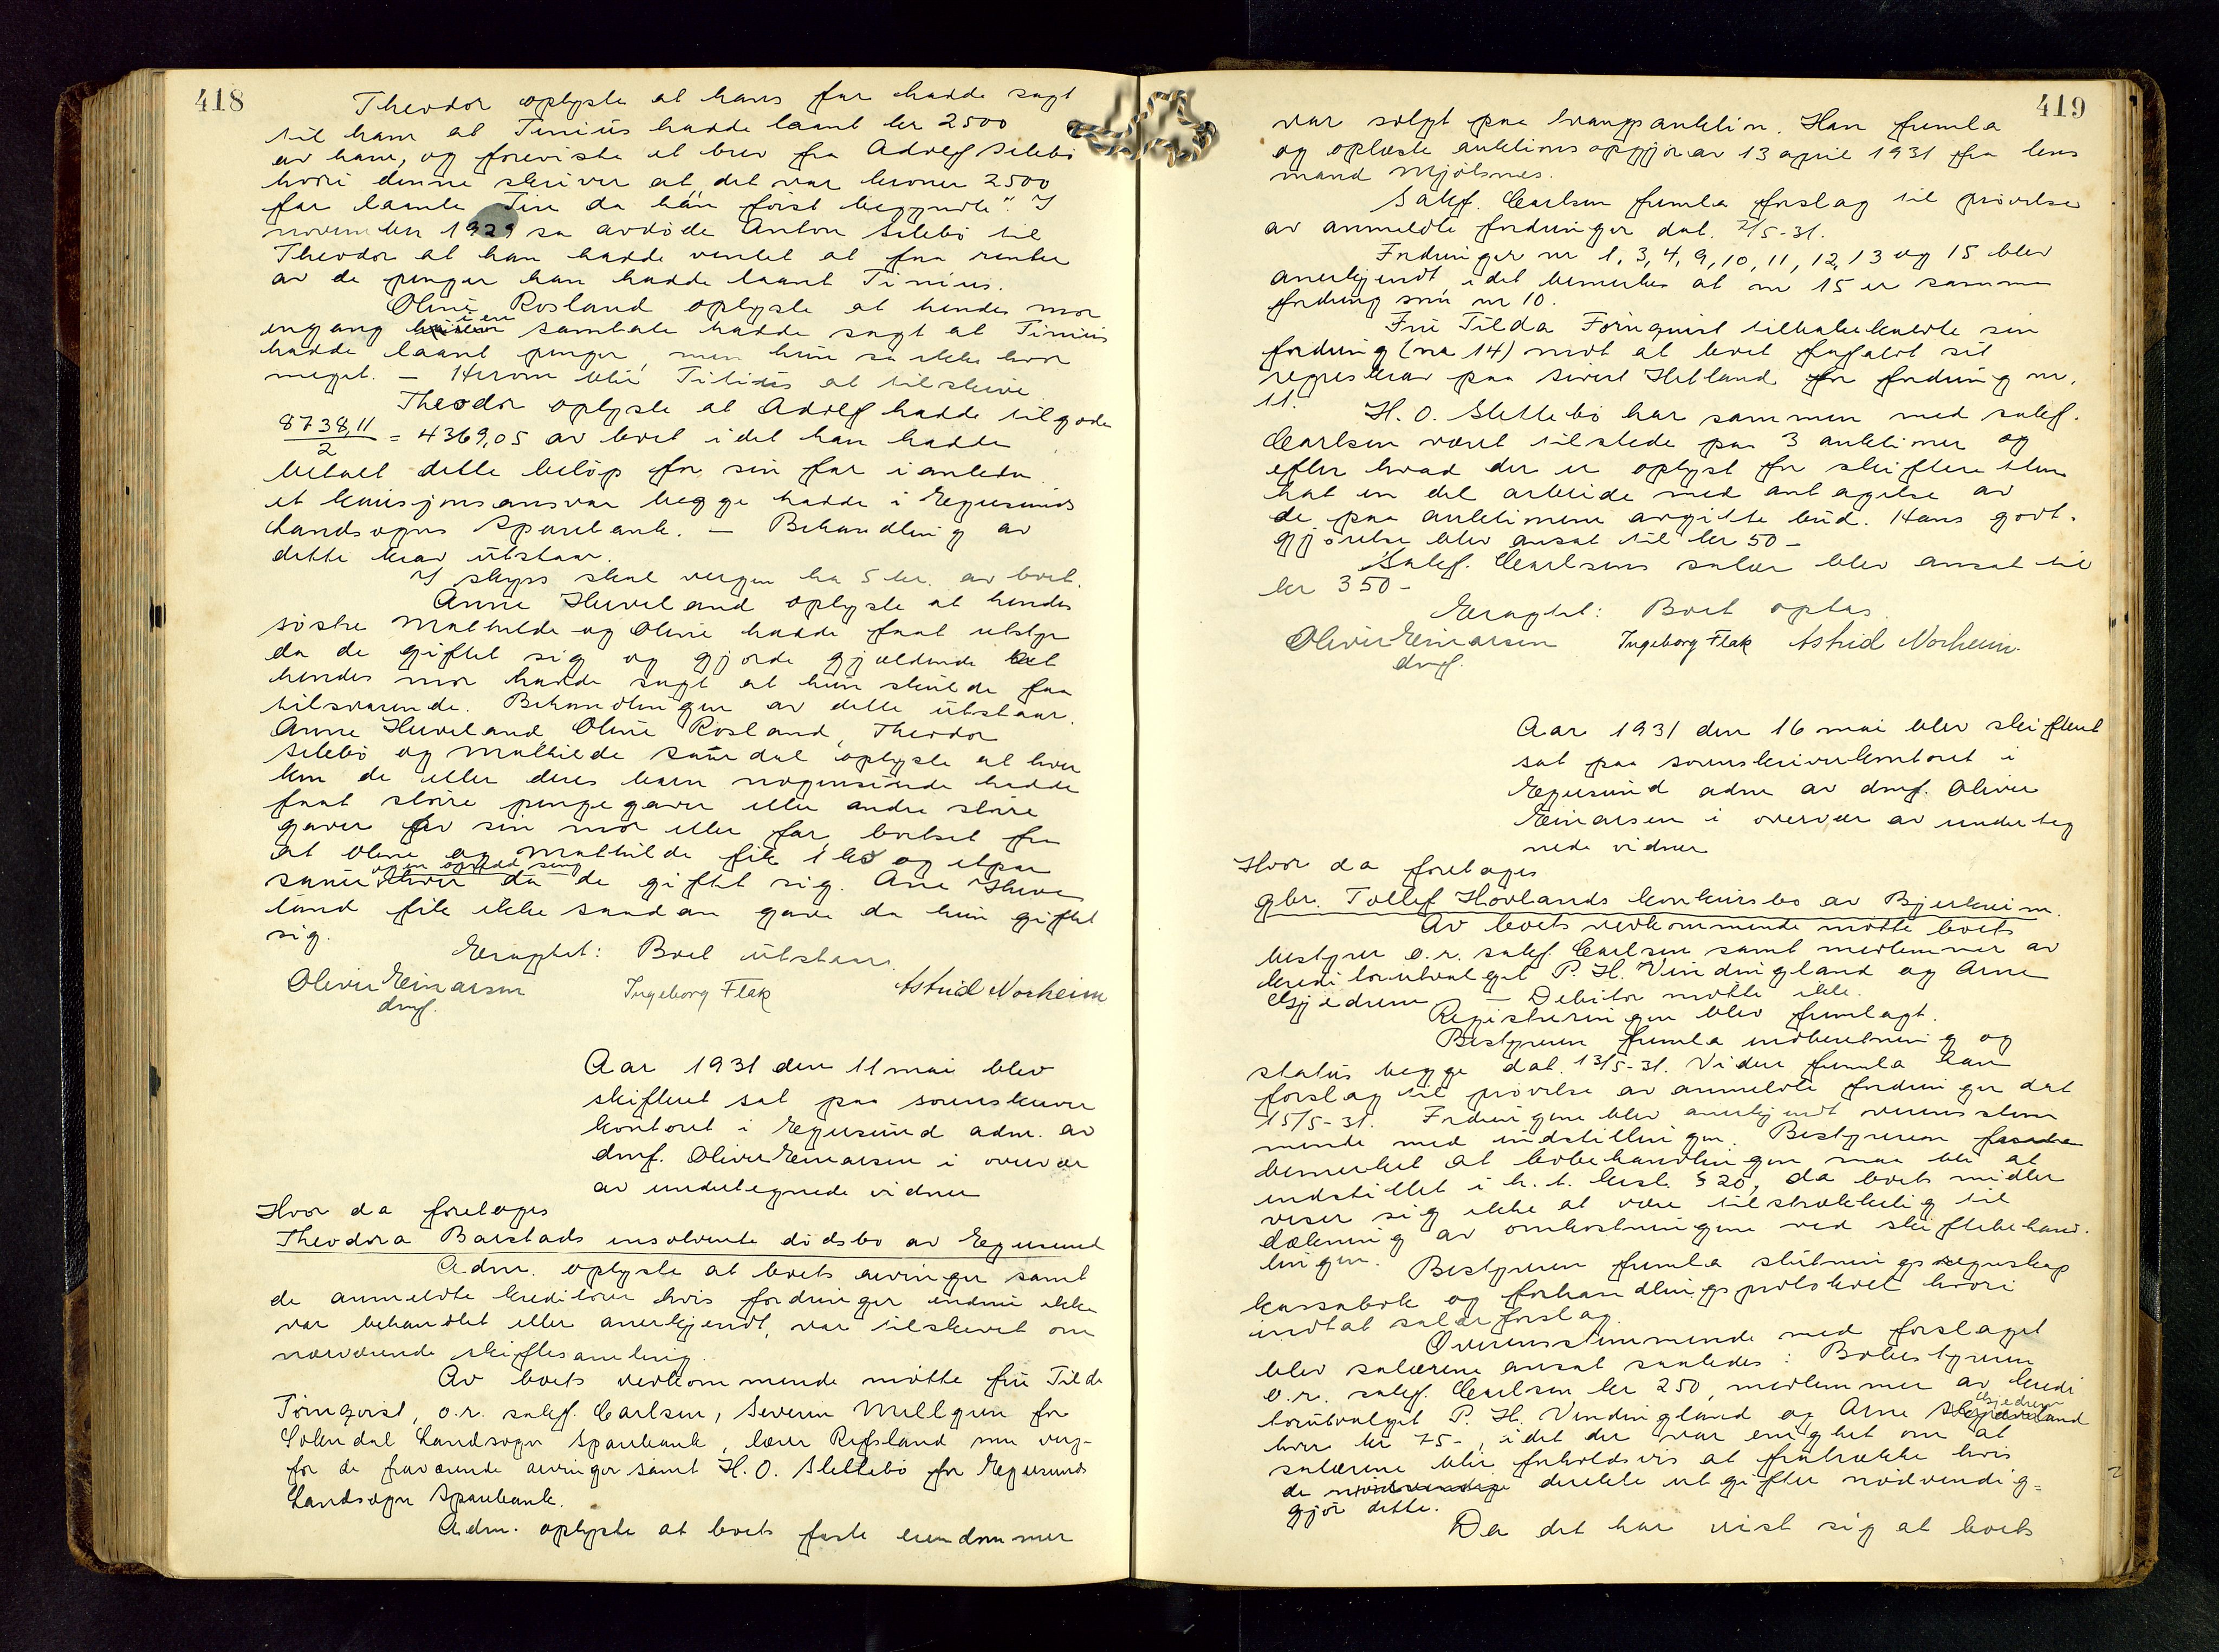 418
Theodor oplyste at hans far hadde sagt
til ham at Tinius hadde laant kr 2500
av ham, og foreviste et brev fra Adolf Slebö
hvori denne skriver at "det var kroner 2500
far laante Tin da han först begyndte". I
november 1929 sa avdöde Anton Slebö til
Theodor at han hadde ventet at faa renter
av de penger han hadde laant Tinius.
Oline Rosland oplyste at hendes mor
engang i en samtale hadde sagt at Tinius
hadde laant penger, men hun sa ikke hvor
meget. — Herom blir Tinius at tilskrive
Theodor oplyste at Adolf hadde tilgode
8738,11/2 = 4369,05 av boet idet han hadde
betalt dette belöp for sin far i anledn.
et kausjonsansvar begge hadde i Egersunds
Landsogns Sparebank. — Behandling av
dette krav utstaar.
I skyss skal vergen ha 5 kr. av boet.
Anne HUveland oplyste at hendes
söstre Mathilde og Oline hadde faat utstyr
da de giftet sig og gjorde gjældende at
hendes mor hadde sagt at hun skulde faa
tilsvarende. Behandlingen av dette utstaar.
Anne HUveland, Oline Rosland, Theodor
Slebö og Mathilde Saurdal oplyste at hver
ken de eller deres barn nogensinde hadde
faat större pengegaver eller andre större
gaver av sin mor eller far bortset fra
at Oline og Mathilde fik 1 ko og etpar
sauer og en opredd seng da de giftet sig. Ane HUve
land fik ikke saadan gave da hun giftet
sig.
Eragtet: Boet utstaar.
Oliver Einarsen Ingeborg Flak Astrid Norheim
dmf.
Aar 1931 den 11 mai blev
skifteret sat paa sorenskriver
kontoret i Egersund adm. av
dmf. Oliver Einarsen i overvær
av undertegnede vidner
Hvor da foretoges
Theodora Barstads insolvente dödsbo av Egersund
Adm. oplyste at boets arvinger samt
de anmeldte kreditorer hvis fordringer endnu ikke
var behandlet eller anerkjendt, var tilskrevet om
nærværende skiftesamling.
Av boets vedkommende mötte fru Tilda
Törnqvist, o.r. sakf. Carlsen, Severin Mellgren for
Sokndal Landsogns Sparebank, lærer Refsland som verge
for de fraværende arvinger samt H. O. Slettebö for Egersunds
Landsogns Sparebank.
Adm. oplyste at boets faste eiendommer
419
var solgt paa tvangsauktion. Han fremla
og oplæste auktionsopgjör av 13 april 1931 fra lens
mand Mjölsnes.
Sakf. Carlsen fremla forslag til prövelse
av anmeldte fordringer dat. 7/5-31.
Fordringer nr 1, 3, 4, 9, 10, 11, 12, 13 og 15 blev
anerkjendt, idet bemerkes at nr 15 er samme
fordring som nr 10.
Fru Tilda Törnquist tilbakekaldte sin
fordring (nr 14) mot at boet frafaldt sit
regreskrav paa Sivert Hetland for fordring nr.
11.
H. O. Slettebö har sammen med sakf.
Carlsen været tilstede paa 3 auktioner og
efter hvad der er oplyst for skifteretten
hat en del arbeide med antagelse av
de paa auktionene avgitte bud. Hans godt-
gjörelse blev ansat til kr 50 –
Sakf. Carlsens salær blev ansat til
kr 350 –
Eragtet: Boet optas.
Oliver Einarsen Ingeborg Flak Astrid Norheim.
dmf.
Aar 1931 den 16 mai blev skifteret
sat paa sorenskriverkontoret i
Egersund adm av dmf. Oliver
Einarsen i overvær av underteg
nede vidner
Hvor da foretoges
gbr. Tollef Hovlands konkursbo av Bjerkreim.
Av boets vedkommende mötte boets
bestyrer o.r. sakf. Carlsen samt medlemmer av
kreditorutvalget P. H. Vindingland og Arne
Gjedrem — Debitor mötte ikke.
Registreringen blev fremlagt.
Bestyreren fremla indberetning og
status begge dat. 13/5-31. Videre fremla han
forslag til prövelse av anmeldte fordringer dat
15/5-31. Fordringene blev anerkjendt overensstem
mende med indstillingen. Bestyreren
bemerket at bobehandlingen maa bli at
indstillet i h. t. kksl. § 20, da boets midler
viser sig ikke at være tilstrækkelig til
dækning av omkostningene ved skiftebehand-
lingen. Bestyreren fremla slutningsregnskap
kassabok og forhandlingsprotokol hvori
indtat salærforslag.
Overensstemmende med forslaget
blev salærene ansat saaledes: Bobestyreren
o.r. sakf. Carlsen kr 250, medlemmer av kredi
torutvalget P. H. Vindingland og Arne Gjedrem
hver kr 75 –, idet der var enighet om at
salærene blir forholdsvis at fratrække hvis
de direkte utgifter nödvendig-
gjör dette.
Da det har vist sig at boets